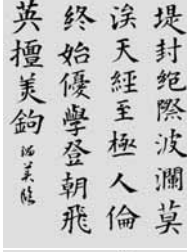 堤封絕際波瀾莫
涘天經至極人倫
終始優學登朝飛
英擅美鉤